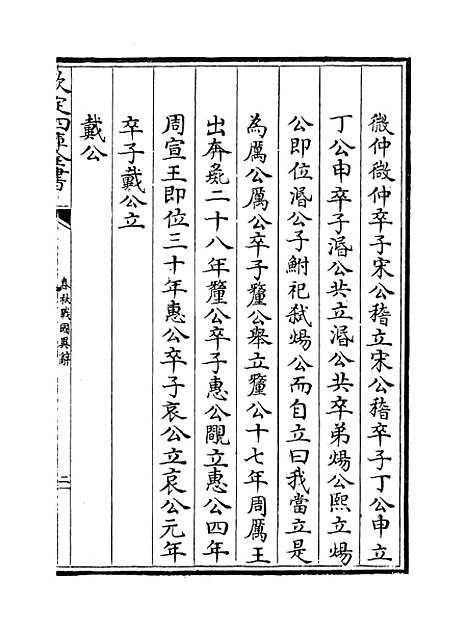 微仲微仲卒子宋公稽立宋公稽卒子丁公申立
丁公申卒子湣公共立湣公共卒弟煬公熙立煬
公即位湣公子鮒祀弑煬公而自立曰我當立是
為厲公厲公卒子釐公舉立釐公十七年周厲王
出奔彘二十八年釐公卒子惠公覸立惠公四年
周宣王即位三十年惠公卒子哀公立哀公元年
卒子戴公立
戴公
欽定四庫全書
春秋戰國異辭
二